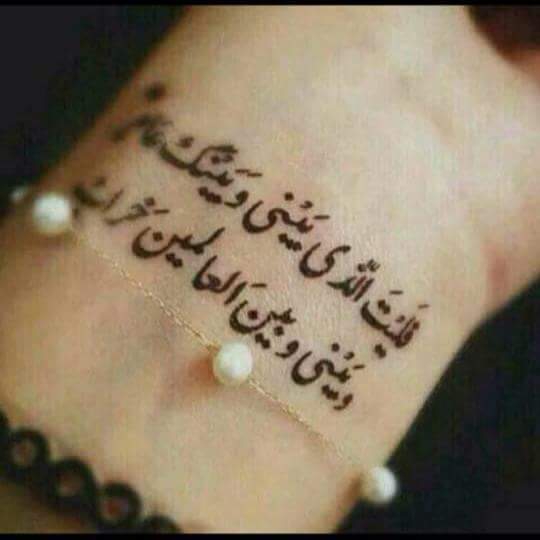 فَلَيْتَ الَّذی بَيْنی وَ بَيْنَكَ عَامِرٌ
وَ بَيْنی وَ بَيْنَ العالمينَ خَرابُ